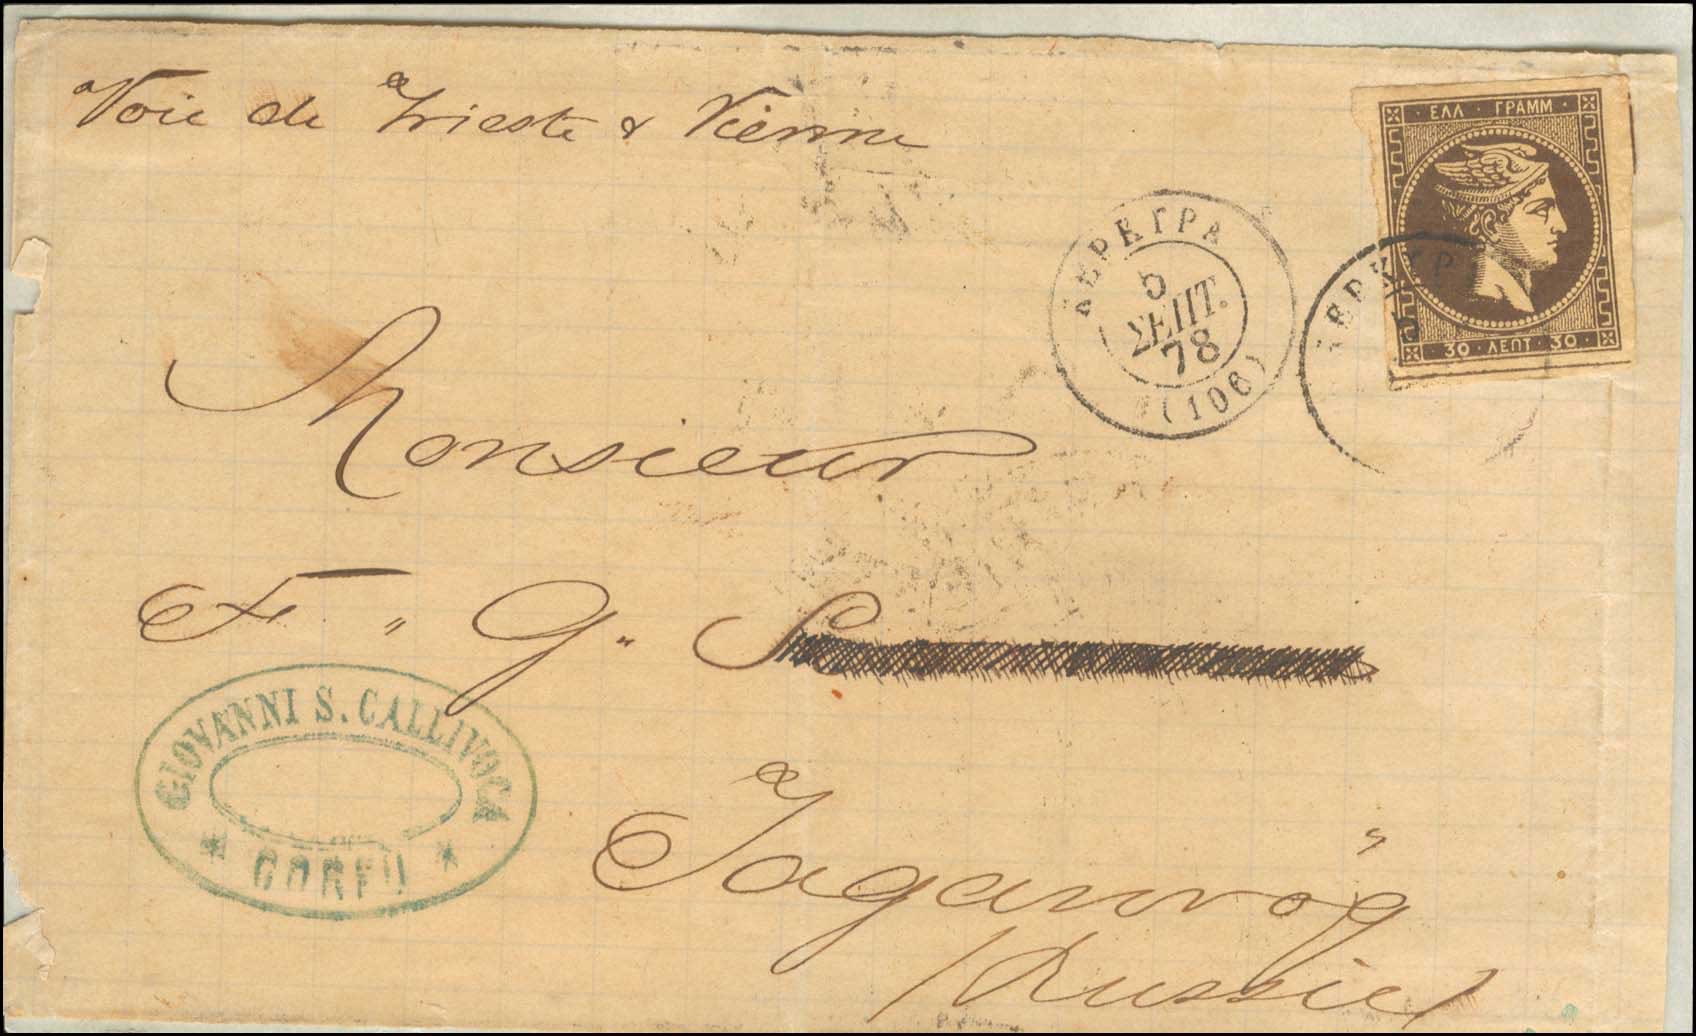 Voie de Trieste & Vienne
ΕΛΛ · ΓΡΑΜΜ ·
30 · ΛΕΠΤ · 30 ·
ΚΕΡΚΥΡΑ
5
ΣΕΠΤ.
78
(106)
Monsieur
F " G "
GIOVANNI S. CALLIVOCA
* CORFU *
Taganrog
(Russie)